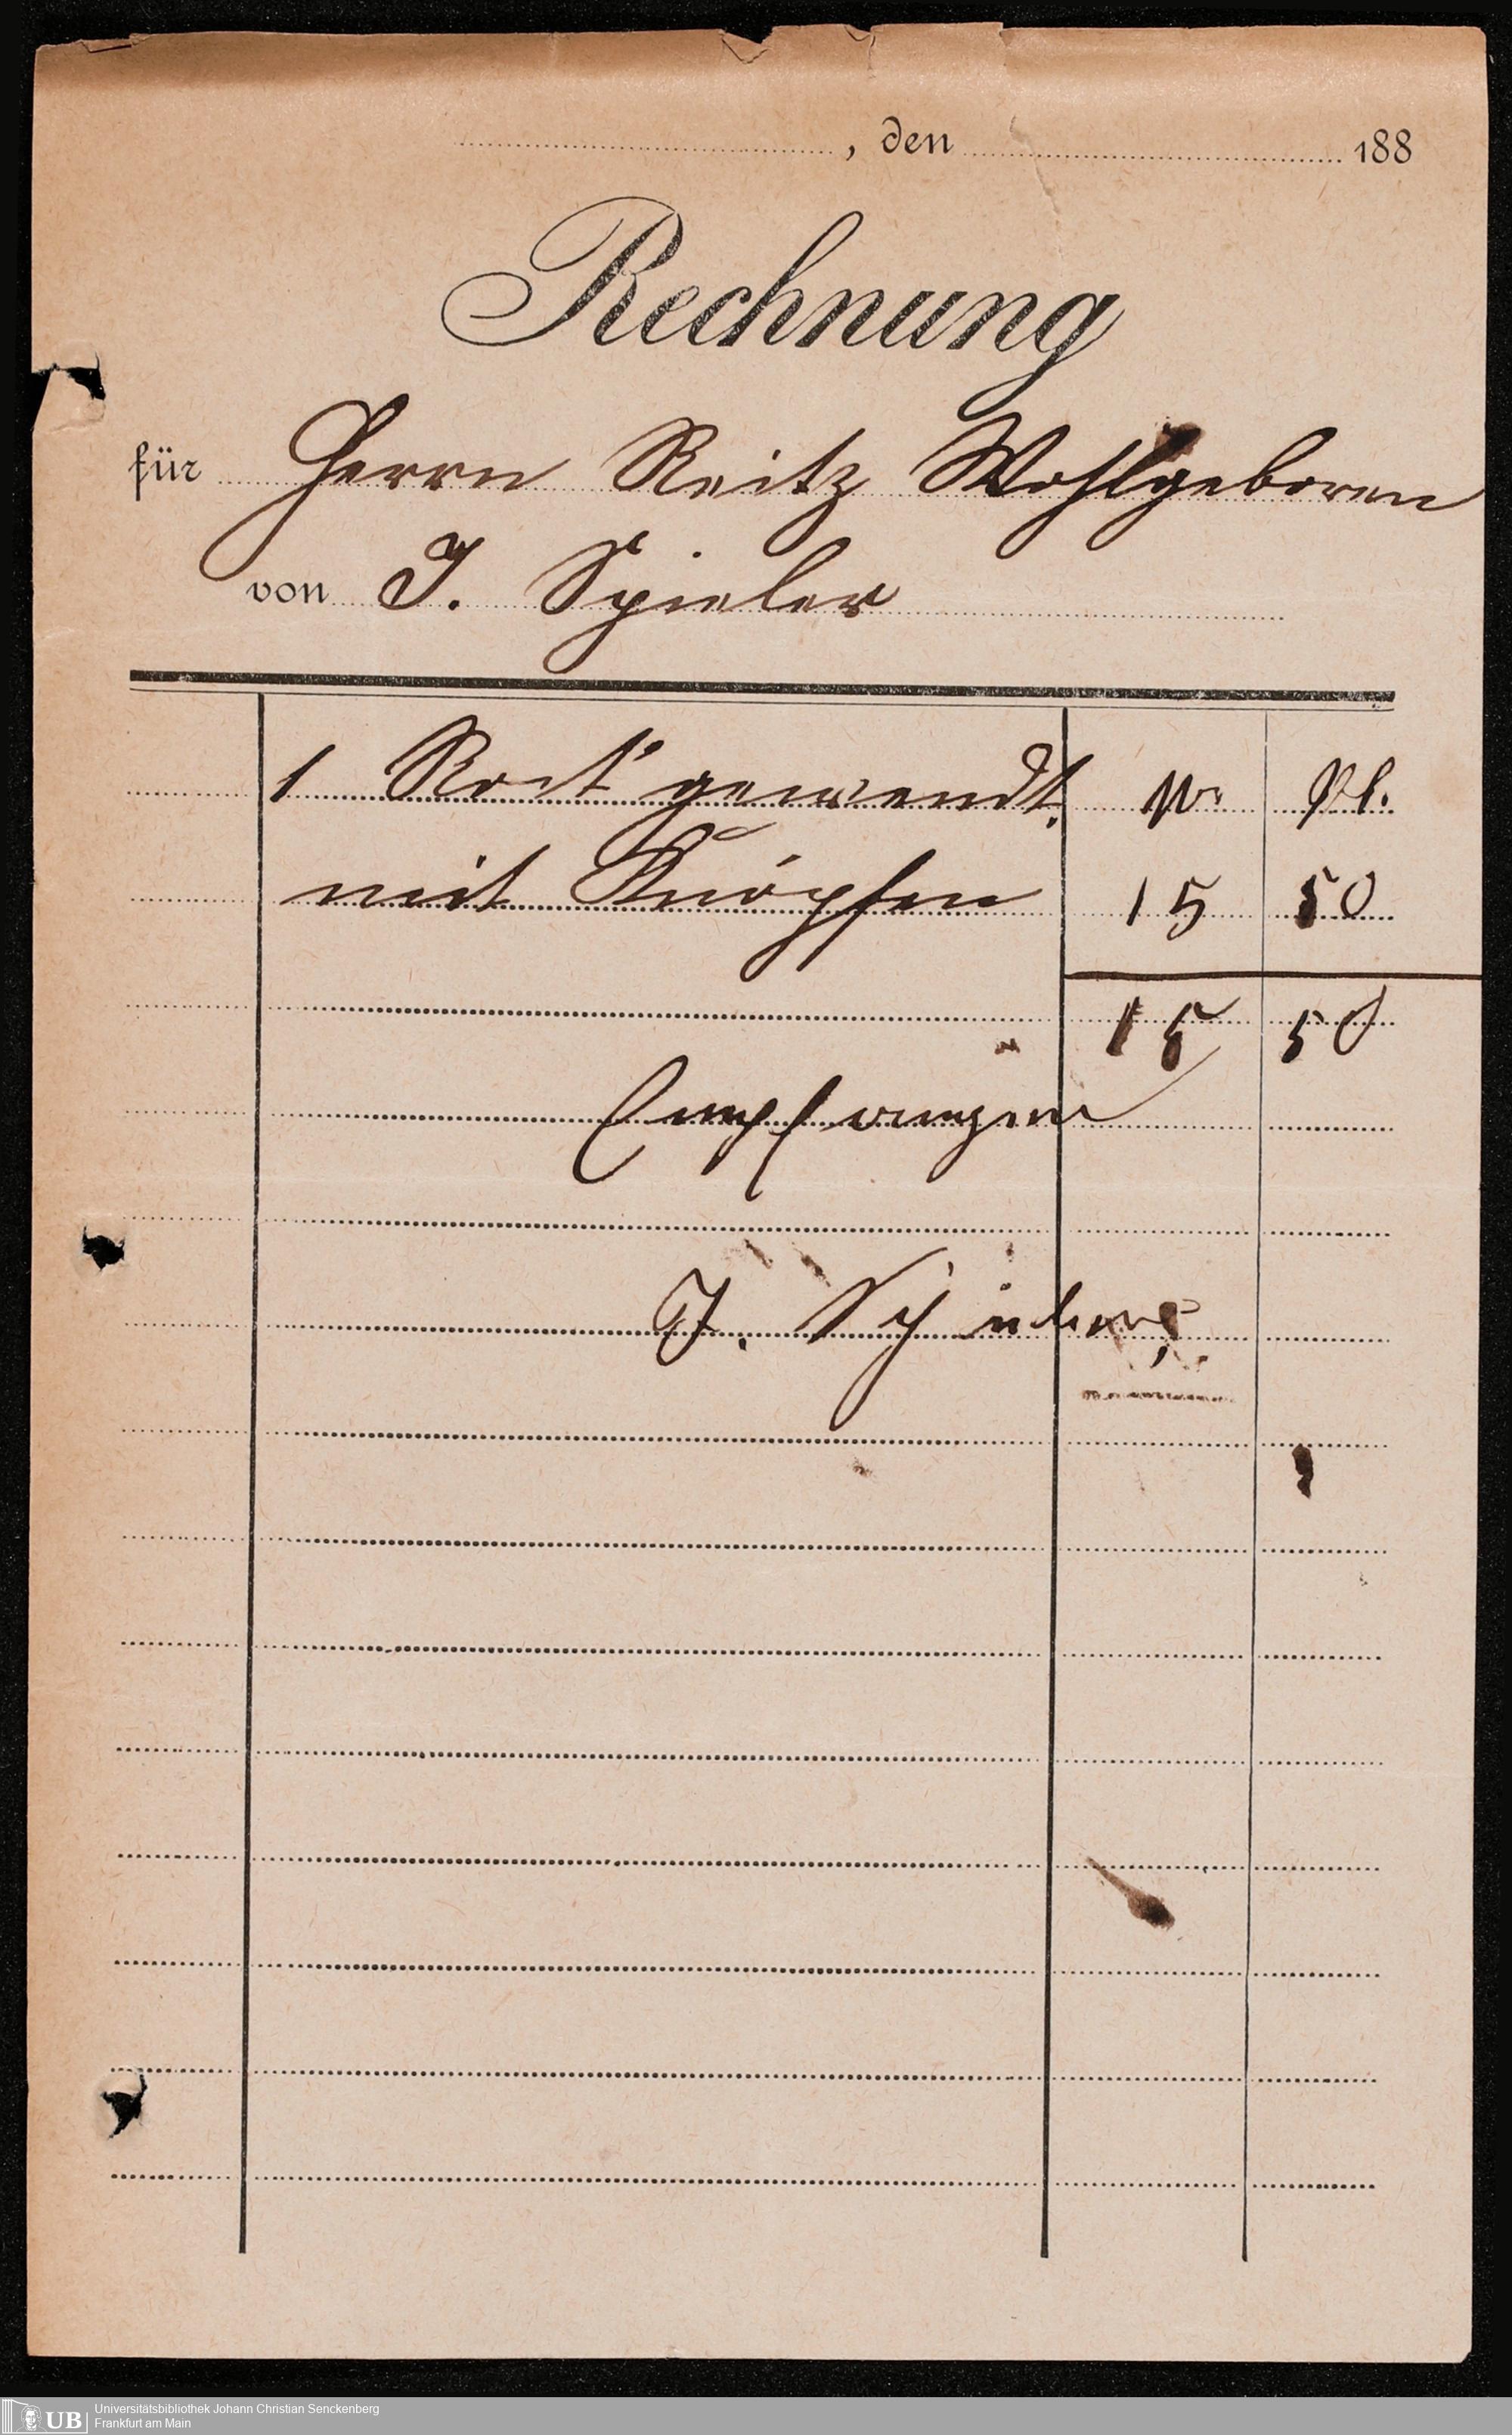 , den 188
Rechnung
für Herrn Reitz Wohlgeboren
von J. Spieler
1 Rock gewendt. M. Pf.
mit Knöpfen 15 50
15 50
Empfangen
J. Spieler
UB Universitätsbibliothek Johann Christian Senckenberg
Frankfurt am Main